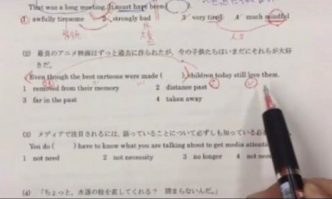 That was a long meeting. It must have been
① awfully tiresome 2 strongly bad 3 very tired 4 much mindful
(2) 最良のアニメ映画はずっと過去に作られたが、今の子供たちはいまだにそれらが大好
きだ。
Even though the best cartoons were made ( ), children today still love them.
1 removed from their memory 2 distance past
3 far in the past 4 taken away
(3) メディアで注目されるには、語っていることについて必ずしも知っている必要
You do ( ) have to know what you are talking about to get media attenti
1 not need 2 not necessity 3 no longer 4 not nece
(4) 「ちょっと、水道の栓を直してくれる？ 閉まらないんだ。」